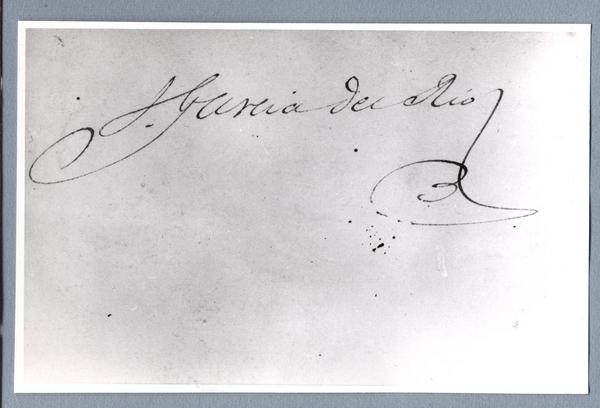 J. Garcia del Rio